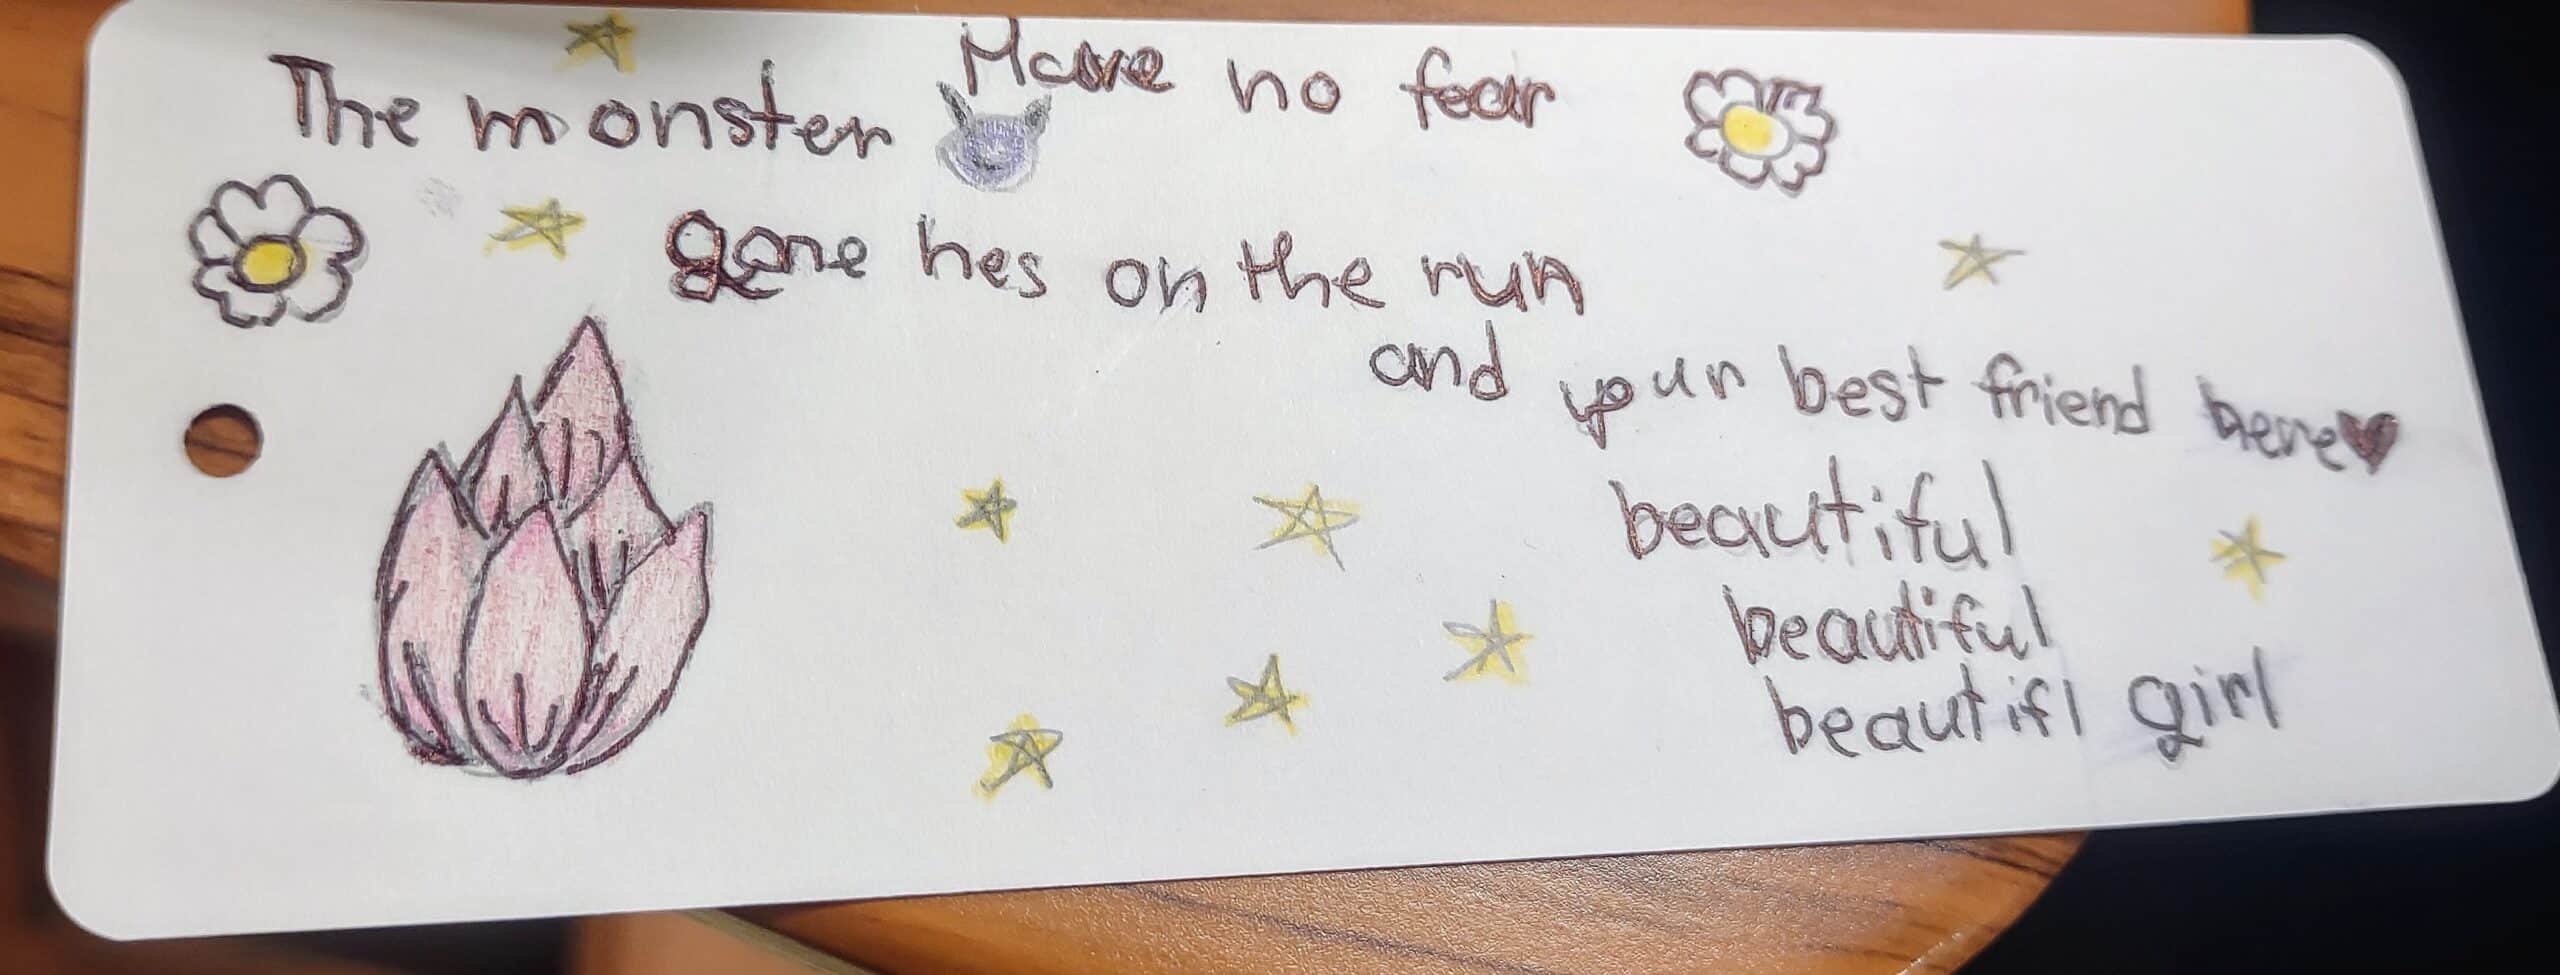 Have no fear
The monster
gone hes on the run
and your best friend here
beautiful
beautiful
beautifl girl